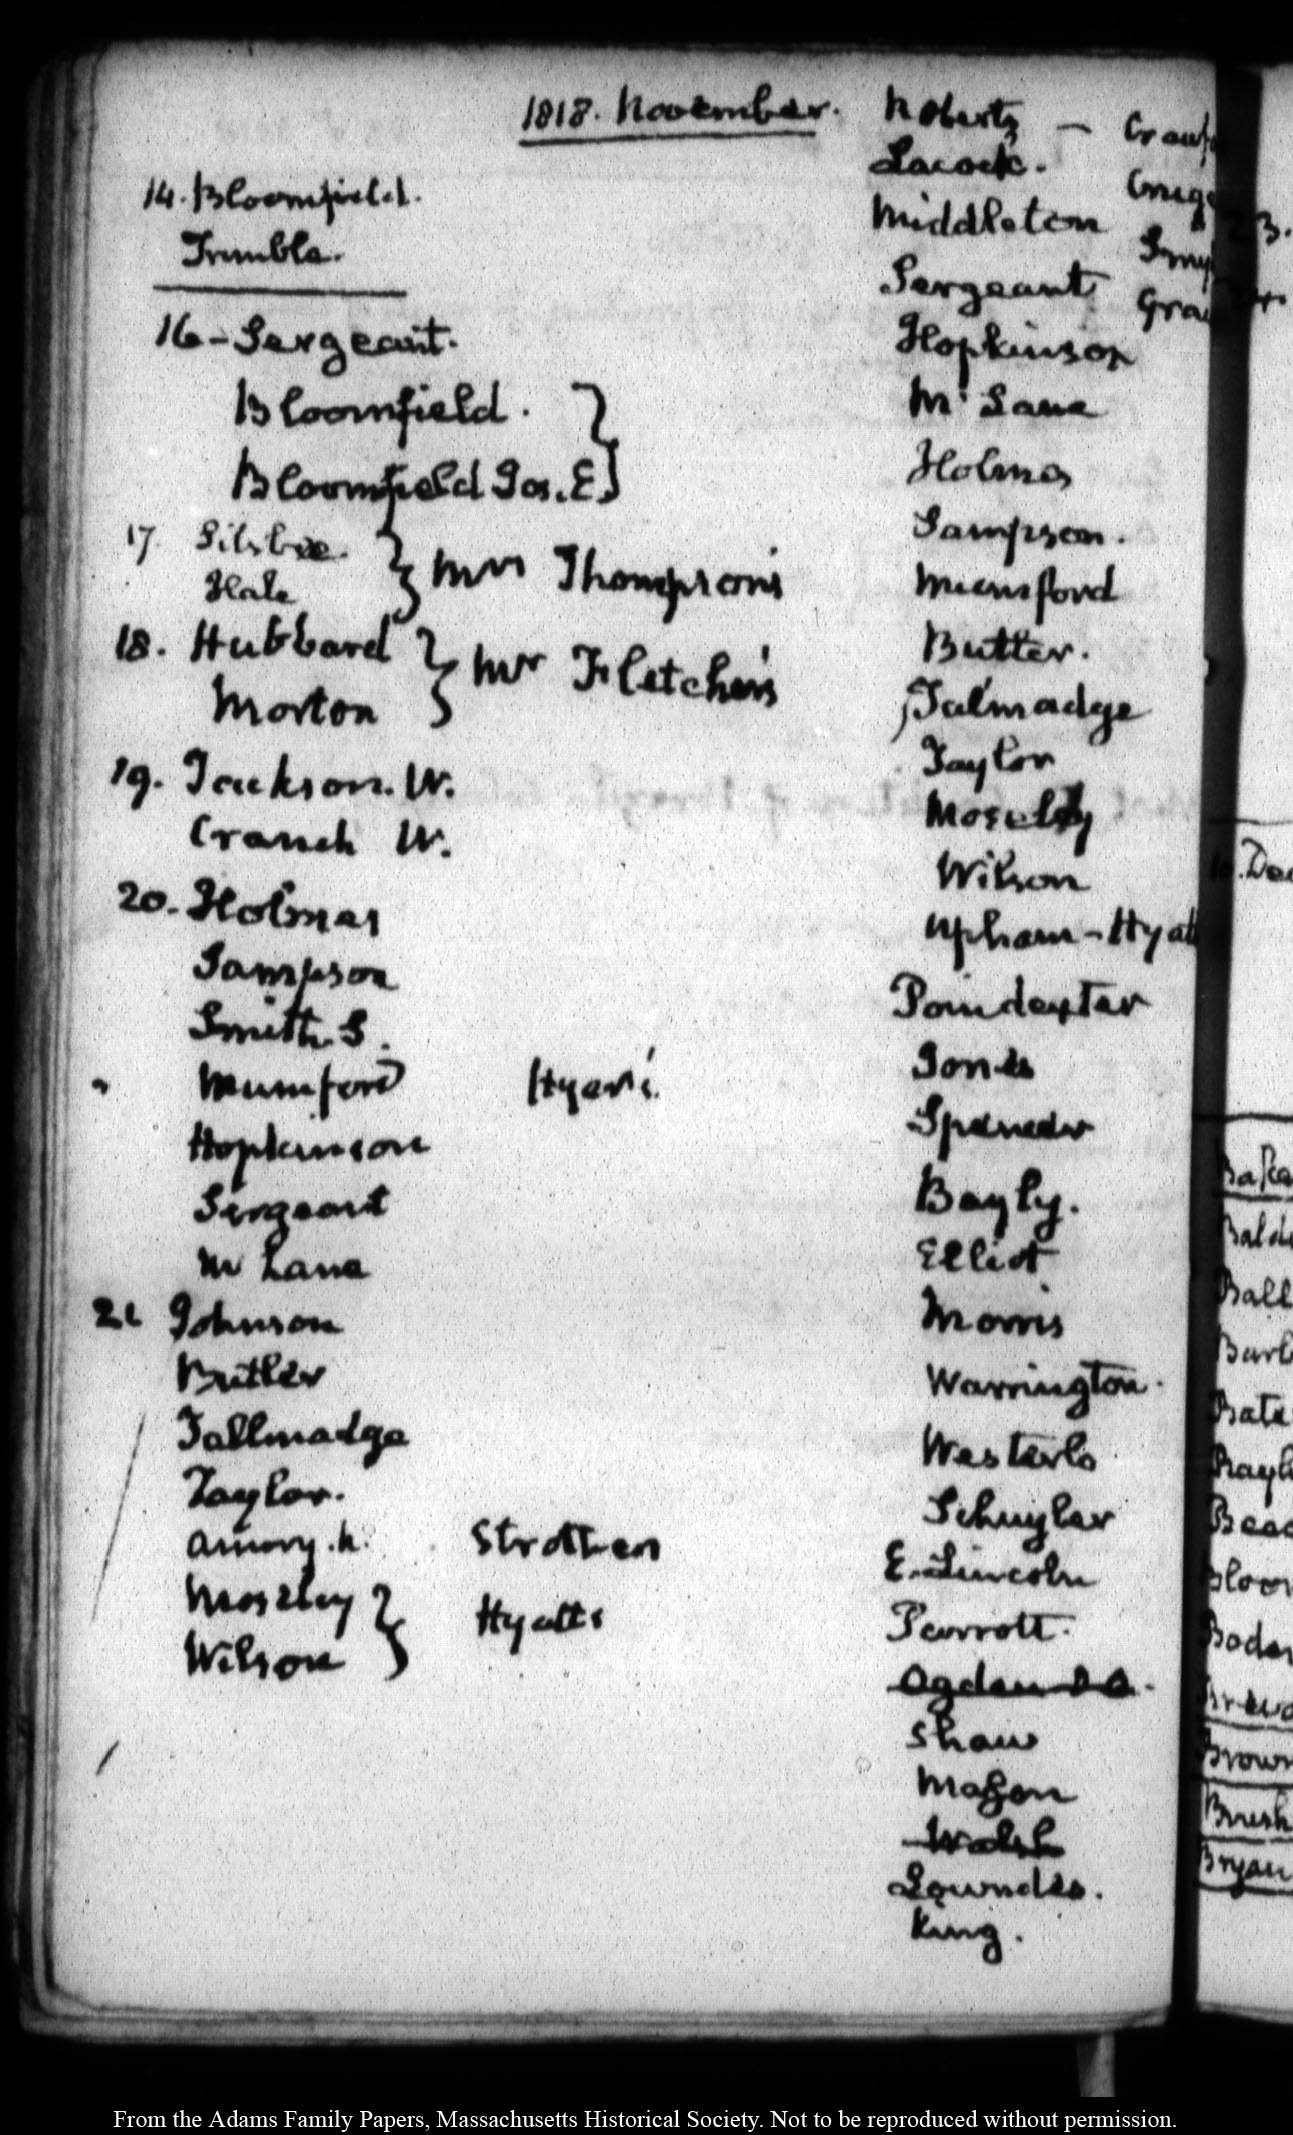 1818. November.
14. Bloomfield.
Trimble.
16 - Sergeant.
Bloomfield.
Bloomfield Jos. E.
17. Silsbee.
Hale
Mrs Thompson's
18. Hubbard
Morton
Mr Fletcher's
19. Jackson. W.
Cranch W.
20. Holmes
Sampson
Smith. S.
Mumford
Hyer's.
Hopkinson
Sergeant
Mc Lane
21 Johnson
Butler
Tallmadge
Taylor.
Amory. N.
Strother
Moseley
Wilson
Hyatts
Roberts —
Lacock.
Middleton
Sergeant
Hopkinson
Mc Lane
Holmes
Sampson.
Mumford
Butler.
Talmadge
Taylor
Mosely
Wilson
Upham - Hyatt
Poindexter
Jones
Spencer
Bayly.
Elliot
Morris
Warrington.
Westerlo
Schuyler
E. Lincoln
Parrott.
Ogden D A.
Shaw
Mason
Walsh
Lowndes.
King.
From the Adams Family Papers, Massachusetts Historical Society. Not to be reproduced without permission.